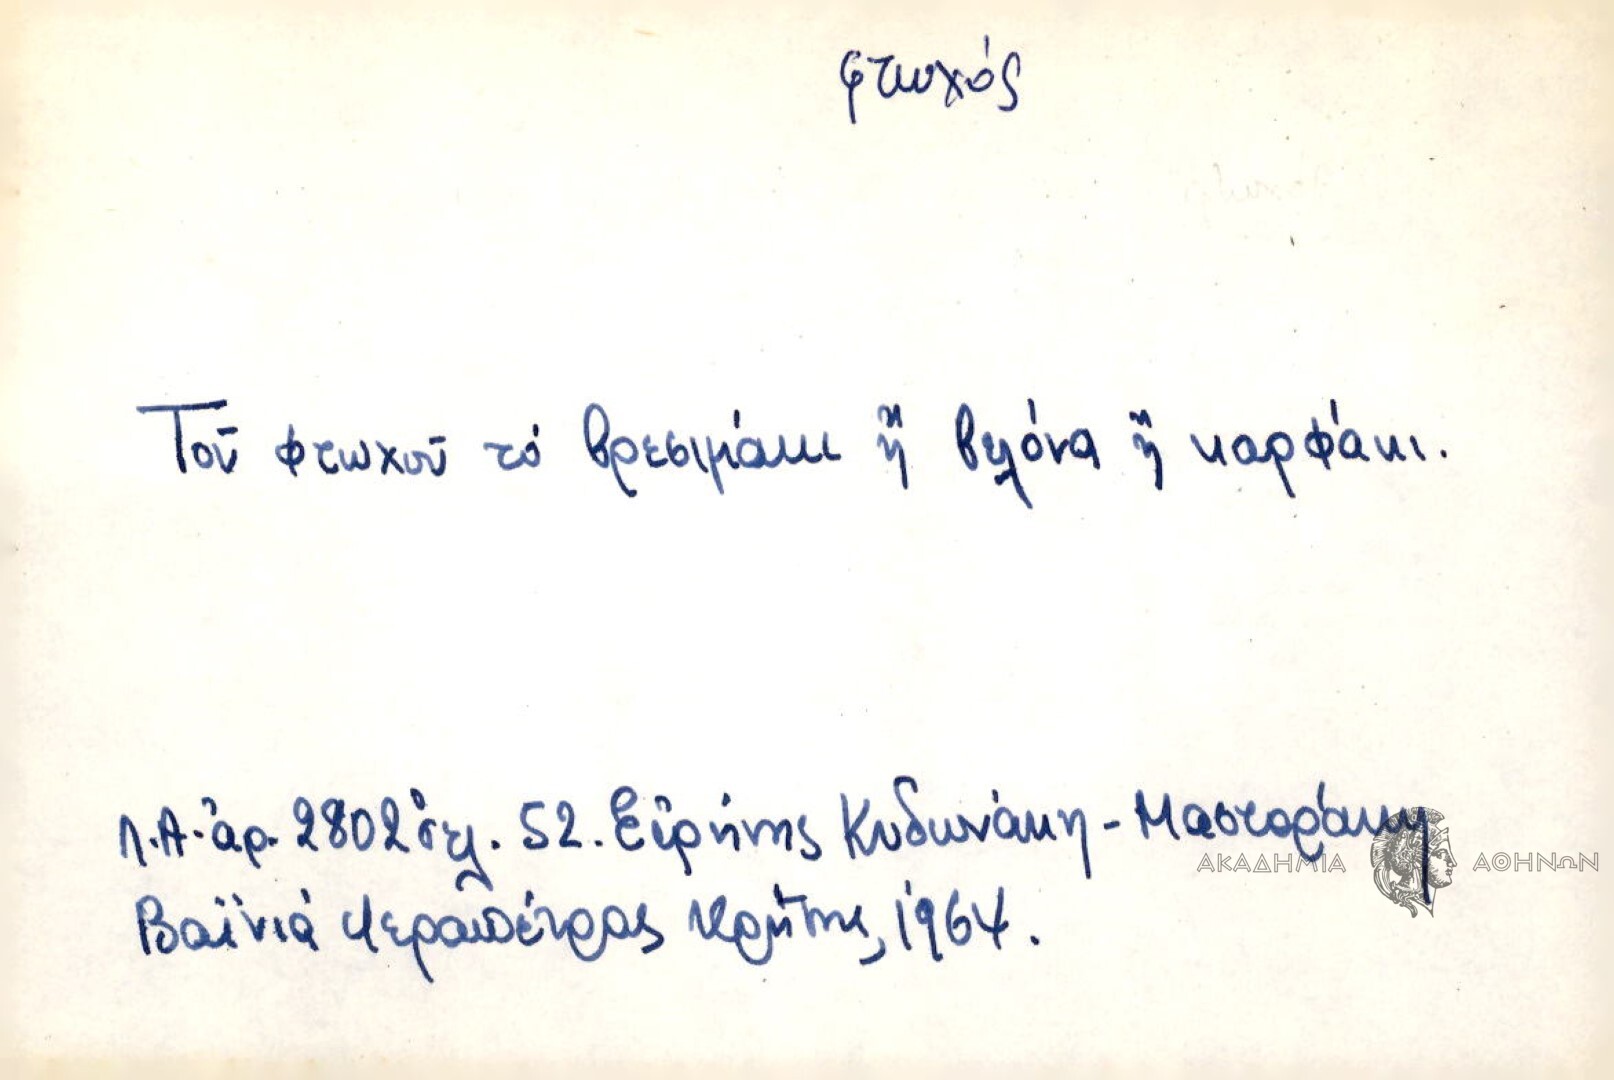 φτωχός
Τοῦ φτωχοῦ τό βρεσιμάκι ἤ βελόνα ἤ καρφάκι.
Λ.Α. ἀρ. 2802 σελ. 52. Εἰρήνης Κυδωνάκη - Μαστοράκη
ΑΚΑΔΗΜΙΑ ΑΘΗΝΩΝ
Βαϊνιά Ἱεραπέτρας Κρήτης, 1964.